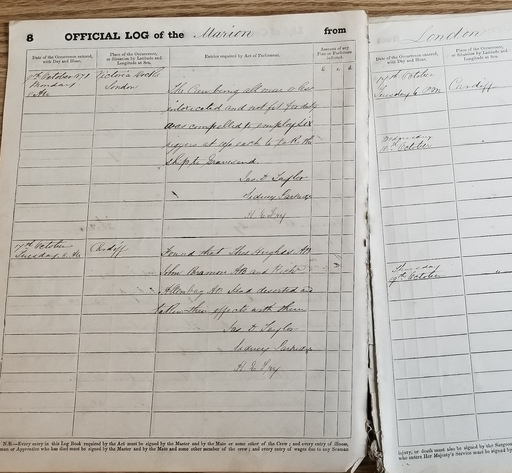 8 OFFICIAL LOG of the Marion from
Date of the Occurrence entered, with Day and Hour.
Place of the Occurrence, or Situation by Latitude and Longitude at Sea.
Entries required by Act of Parliament.
Amount of any Fine or Forfeiture inflicted.
October 1871 Victoria Docks
Monday London
The Crew being all more or less
intoxicated and not fit for duty
was compelled to employ six
riggers at each to take the
ship to Gravesend.
Jas. D. Taylor
Sidney Partridge
H. E. Fry
17th October Cardiff
Tuesday
Found that Thos Hughes AB
John AB and
AB had deserted and
taken their effects with them
Jas. D. Taylor
Sidney Partridge
H. E. Fry
N.B.—Every entry in this Log Book required by the Act must be signed by the Master and by the Mate or some other of the Crew; and every entry of illness,
man or Apprentice who has died must be signed by the Master and by the Mate and some other member of the crew; and every entry of wages due to any Seaman
London
Date of the Occurrence entered, with Day and Hour.
Place of the Occurrence, or Situation by Latitude and Longitude at Sea.
17th October Cardiff
Tuesday 6 PM
Wednesday
18th October
Thursday
19th October
injury, or death must also be signed by the Surgeon
who enters Her Majesty's Service must be signed by